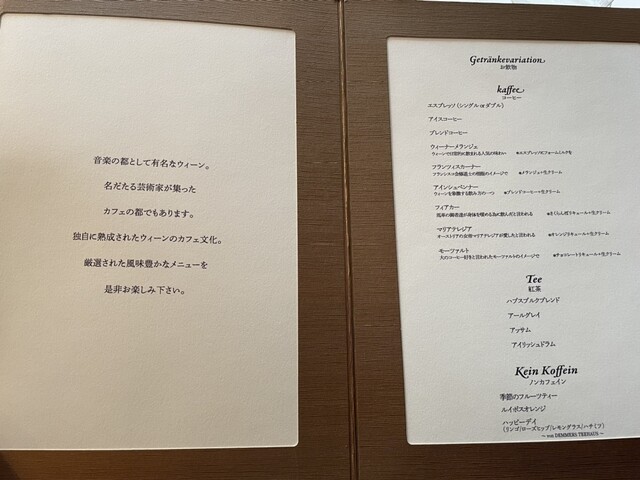 音楽の都として有名なウィーン。
名だたる芸術家が集った
カフェの都でもあります。
独自に熟成されたウィーンのカフェ文化。
厳選された風味豊かなメニューを
是非お楽しみ下さい。
Getränkevariation
お飲物
kaffee
コーヒー
エスプレッソ(シングル or ダブル)
アイスコーヒー
ブレンドコーヒー
ウィーナーメランジェ
ウィーンで日常的に飲まれる人気の味わい ※エスプレッソにフォームミルクを
フランツィスカーナー
フランシスコ会修道士の間服のイメージで ※メランジェ+生クリーム
アインシュペンナー
ウィーンを象徴する飲み方の一つ ※ブレンドコーヒー+生クリーム
フィアカー
馬車の御者達が身体を暖める為に飲んだと言われる ※さくらんぼリキュール+生クリーム
マリアテレジア
オーストリアの女帝マリアテレジアが愛したと言われる ※オレンジリキュール+生クリーム
モーツァルト
大のコーヒー好きと言われたモーツァルトのイメージで ※チョコレートリキュール+生クリーム
Tee
紅茶
ハプスブルクブレンド
アールグレイ
アッサム
アイリッシュドラム
Kein Koffein
ノンカフェイン
季節のフルーツティー
ルイボスオレンジ
ハッピーデイ
(リンゴ/ローズヒップ/レモングラス/ハチミツ)
~ von DEMMERS TEEHAUS ~